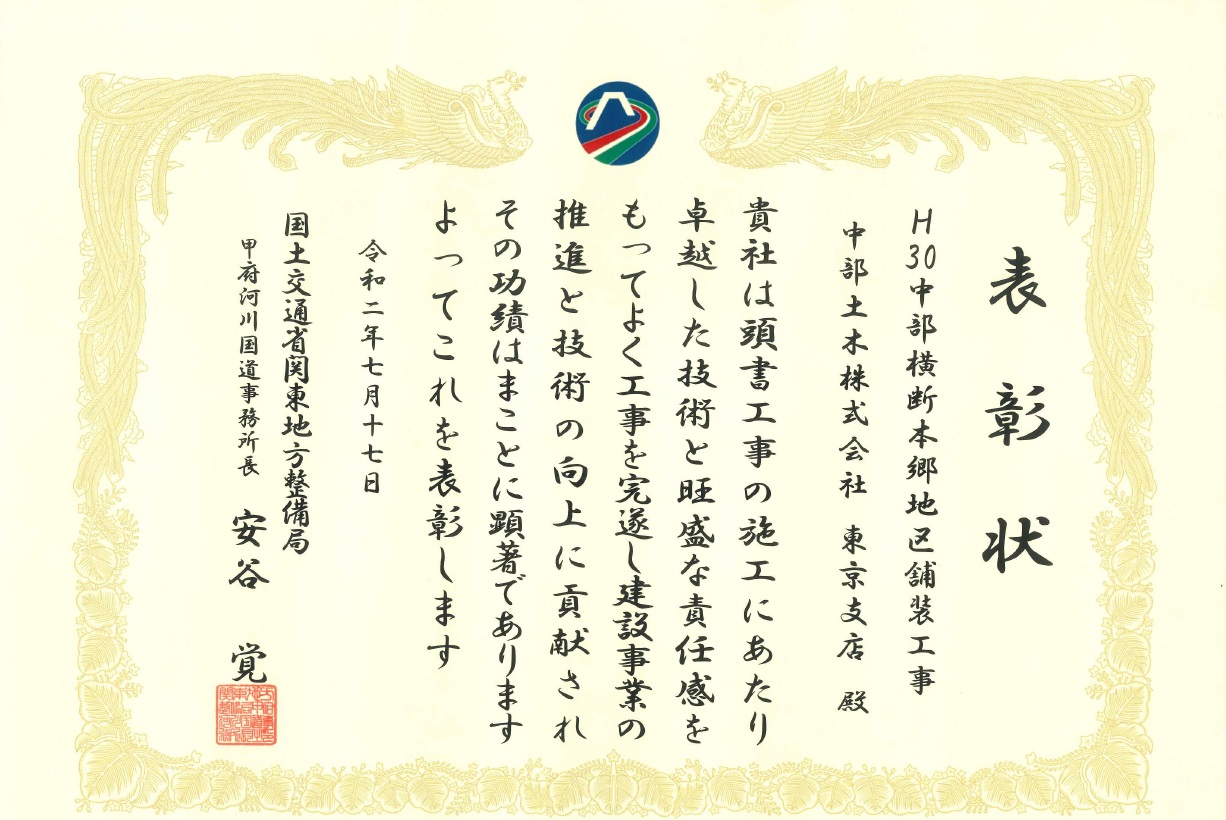 表彰状
H30中部横断本郷地区舗装工事
中部土木株式会社 東京支店 殿
貴社は頭書工事の施工にあたり
卓越した技術と旺盛な責任感を
もってよく工事を完遂し建設事業の
推進と技術の向上に貢献され
その功績はまことに顕著であります
よってこれを表彰します
令和二年七月十七日
国土交通省関東地方整備局
甲府河川国道事務所長 安谷 覚